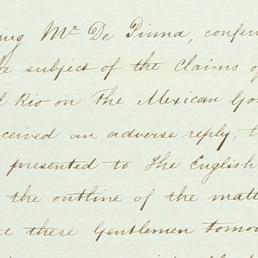 ing Mr De Pinna, confer
be subject of the Claims of
l Rio on The Mexican Go
ceived an adverse reply, t
presented to The English
the outline of the matt
e these Gentlemen tomor